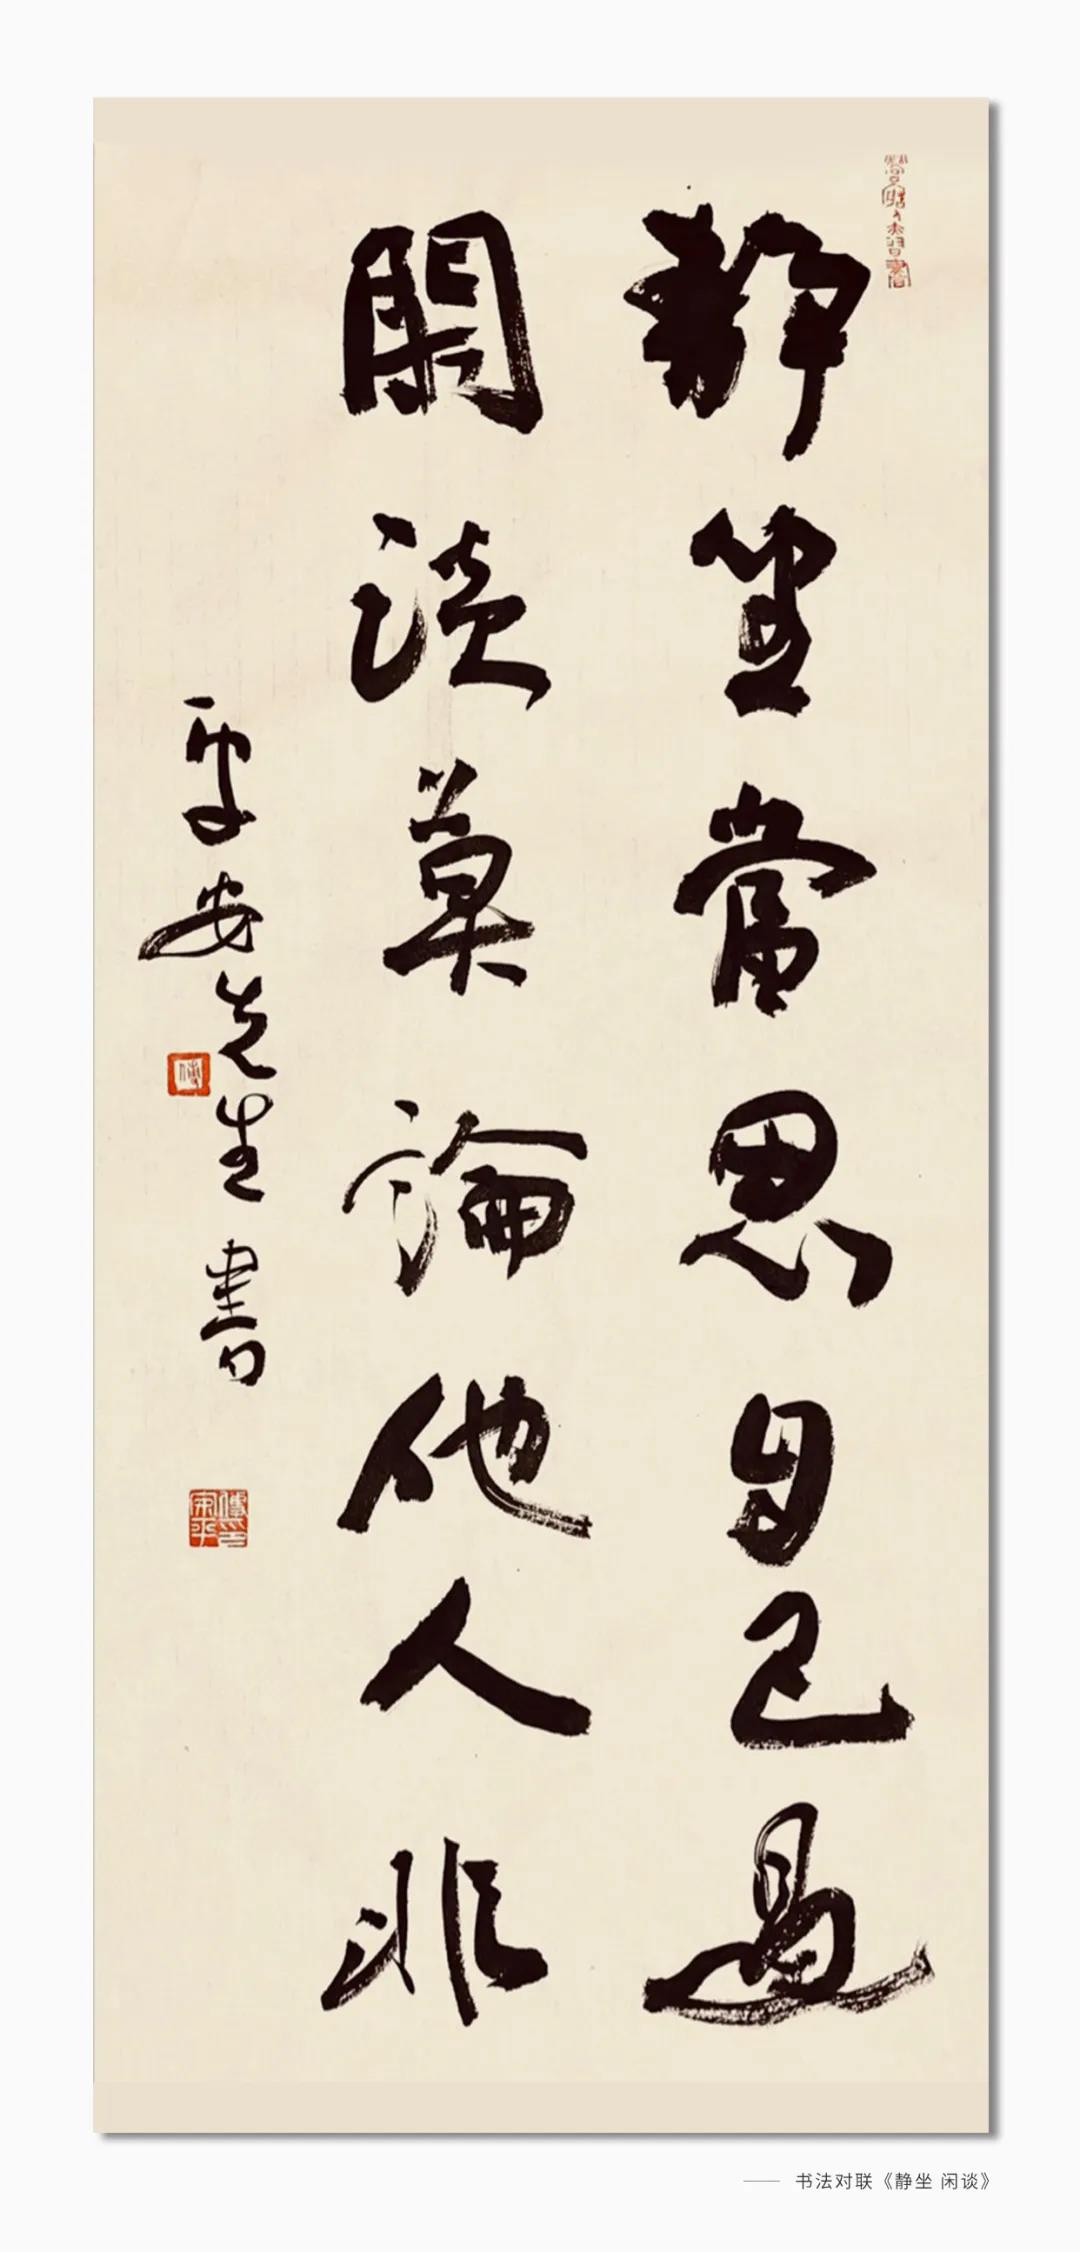 靜坐常思自己過
閑談莫論他人非
平安先生書
傅
—— 书法对联《静坐 闲谈》